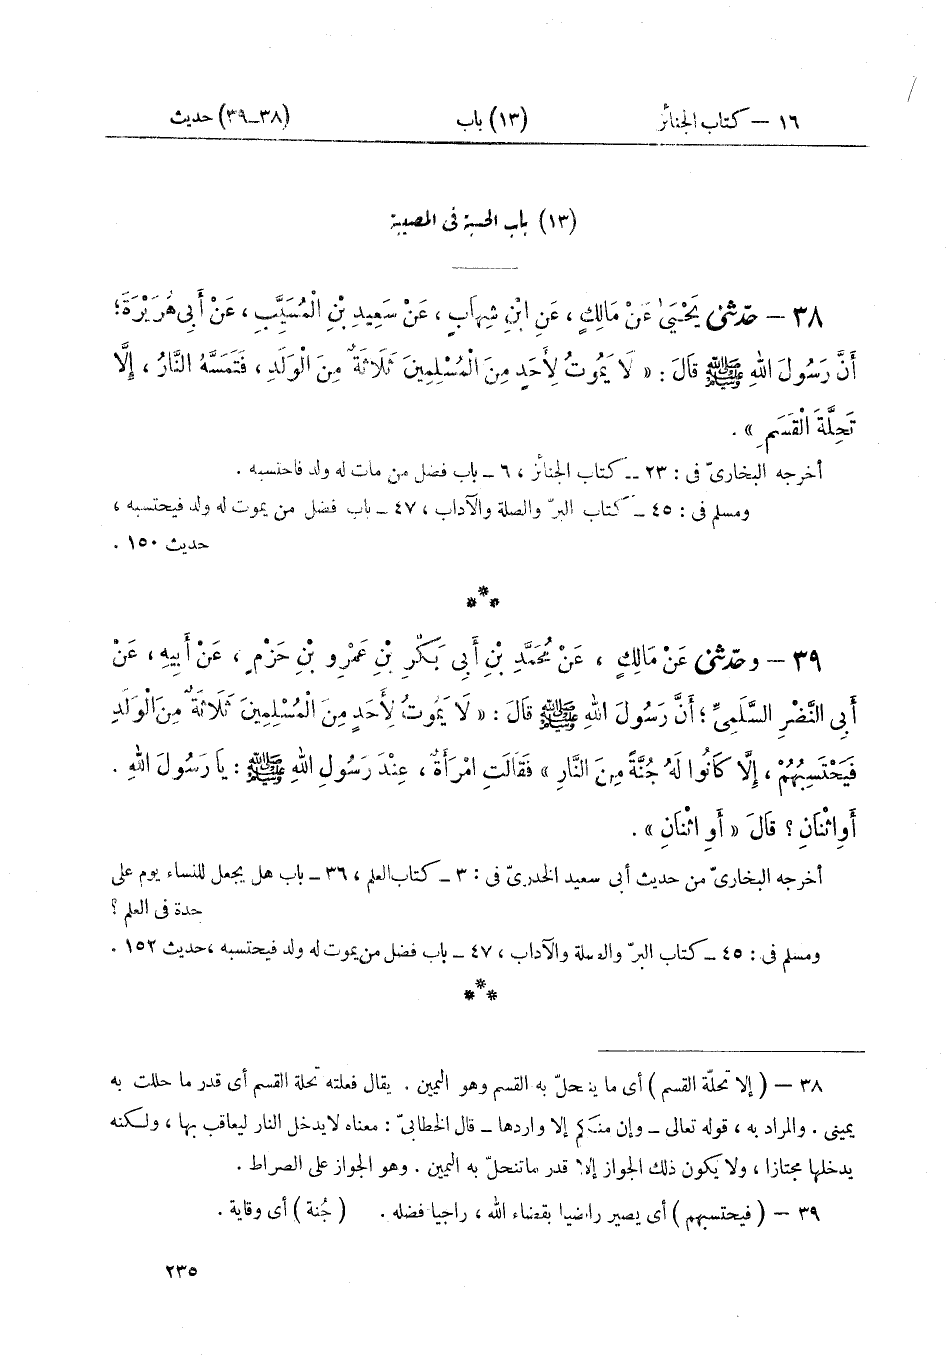 ١٦ – كتاب الجنائز (١٣) باب (٣٨ــ٣٩) حديث
(١٣) باب الحسبة فى المصيبة
٣٨ – حَدّثنى يَحْيَىٰ عَنْ مَالِكٍ ، عَنِ ابْنِ شِهَابٍ ، عَنْ سَعِيدِ بْنِ الْمُسَيَّبِ ، عَنْ أَبِى هُرَيْرَةَ ؛
أَنَّ رَسُولَ اللهِ ﷺ قَالَ : « لَا يَمُوتُ لِأَحَدٍ مِنَ الْمُسْلِمِينَ ثَلَاثَةٌ مِنَ الْوَلَدِ ، فَتَمَسَّهُ النَّارُ ، إِلَّا
تَحِلَّةَ الْقَسَمِ » .
أخرجه البخارىّ فى : ٢٣ ــ كتاب الجنائز ، ٦ ــ باب فضل من مات له ولد فاحتسبه .
ومسلم فى : ٤٥ ــ كتاب البرّ والصلة والآداب ، ٤٧ ــ باب فضل من يموت له ولد فيحتسبه ،
حديث ١٥٠ .
***
٣٩ – وحَدّثنى عَنْ مَالِكٍ ، عَنْ مُحَمَّدِ بْنِ أَبِى بَكْرِ بْنِ عَمْرِو بْنِ حَزْمٍ ، عَنْ أَبِيهِ ، عَنْ
أَبِى النَّضْرِ السَّلَمِىِّ ؛ أَنَّ رَسُولَ اللهِ ﷺ قَالَ : « لَا يَمُوتُ لِأَحَدٍ مِنَ الْمُسْلِمِينَ ثَلَاثَةٌ مِنَ الْوَلَدِ
فَيَحْتَسِبُهُمْ ، إِلَّا كَانُوا لَهُ جُنَّةً مِنَ النَّارِ » فَقَالَتِ امْرَأَةٌ ، عِنْدَ رَسُولِ اللهِ ﷺ : يَا رَسُولَ اللهِ .
أَوِ اثْنَانِ ؟ قَالَ « أَوِ اثْنَانِ » .
أخرجه البخارىّ من حديث أبى سعيد الخدرىّ فى : ٣ ــ كتاب العلم ، ٣٦ ــ باب هل يجعل للنساء يوم على
حدة فى العلم ؟
ومسلم فى : ٤٥ ــ كتاب البرّ والصلة والآداب ، ٤٧ ــ باب فضل من يموت له ولد فيحتسبه ، حديث ١٥٢ .
***
٣٨ – ( إلا تحلّة القسم ) أى ما ينحلّ به القسم وهو اليمين . يقال فعلته تحلة القسم أى قدر ما حللت به
يمينى . والمراد به ، قوله تعالى ــ وإن منكم إلا واردها ــ قال الخطابىّ : معناه لا يدخل النار ليعاقب بها ، ولكنه
يدخلها مجتازا ، ولا يكون ذلك الجواز إلا قدر ما تنحلّ به اليمين . وهو الجواز على الصراط .
٣٩ – ( فيحتسبهم ) أى يصير راضيا بقضاء الله ، راجيا فضله . ( جُنة ) أى وقاية .
٢٣٥